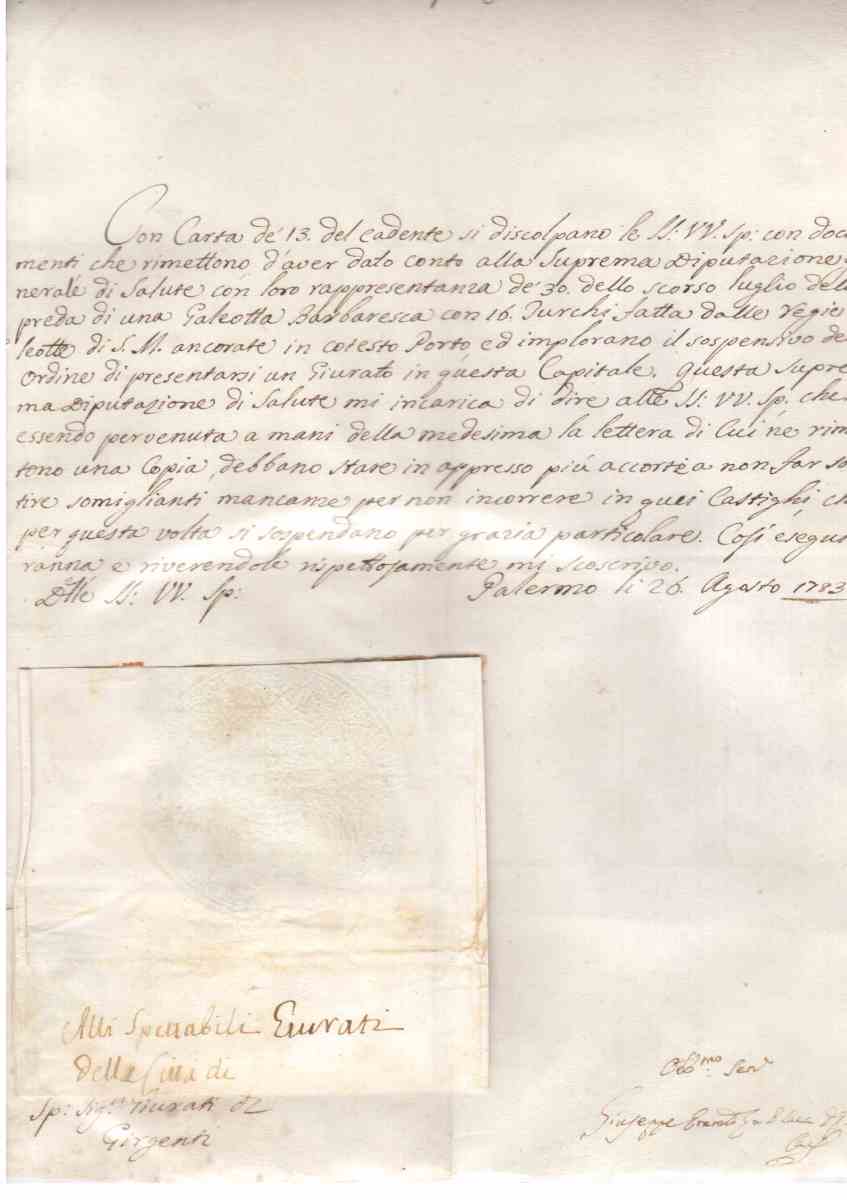 Con Carta de' 13. del cadente si discolpano le SS: VV. Sp: con docu
menti che rimettono d'aver dato conto alla Suprema Diputazione
nerale di Salute con loro rappresentanza de' 30. dello scorso luglio dell
preda di una Galeotta Barbaresca con 16. Turchi fatta dalle regie
leotte di S. M. ancorate in cotesto Porto ed implorano il sospensivo de
Ordine di presentarsi un Giurato in questa Capitale. Questa supre
ma Diputazione di Salute mi incarica di dire alle SS: VV. Sp. che
essendo pervenuta a mani della medesima la lettera di cui ne rim
tono una Copia, debbano stare in appresso più accorte a non far so
tire somiglianti mancame per non incorrere in quei Castighi, ch
per questa volta si sospendano per grazia particolare. Così esegui
ranna e riverendole rispettosamente mi soscrivo.
Dlle SS: VV. Sp: Palermo li 26. Agosto 1783
Alli Spettabili Giurati
della Città di
Sp: Sig.ri Giurati di
Girgenti
Obb.mo Serv
Giuseppe